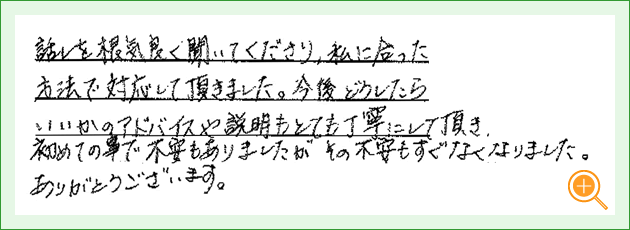 話しを根気良く聞いてくださり、私に合った
方法で対応して頂きました。今後どうしたら
いいかのアドバイスや説明もとても丁寧にして頂き、
初めての事で不安もありましたが その不安もすぐなくなりました。
ありがとうございます。